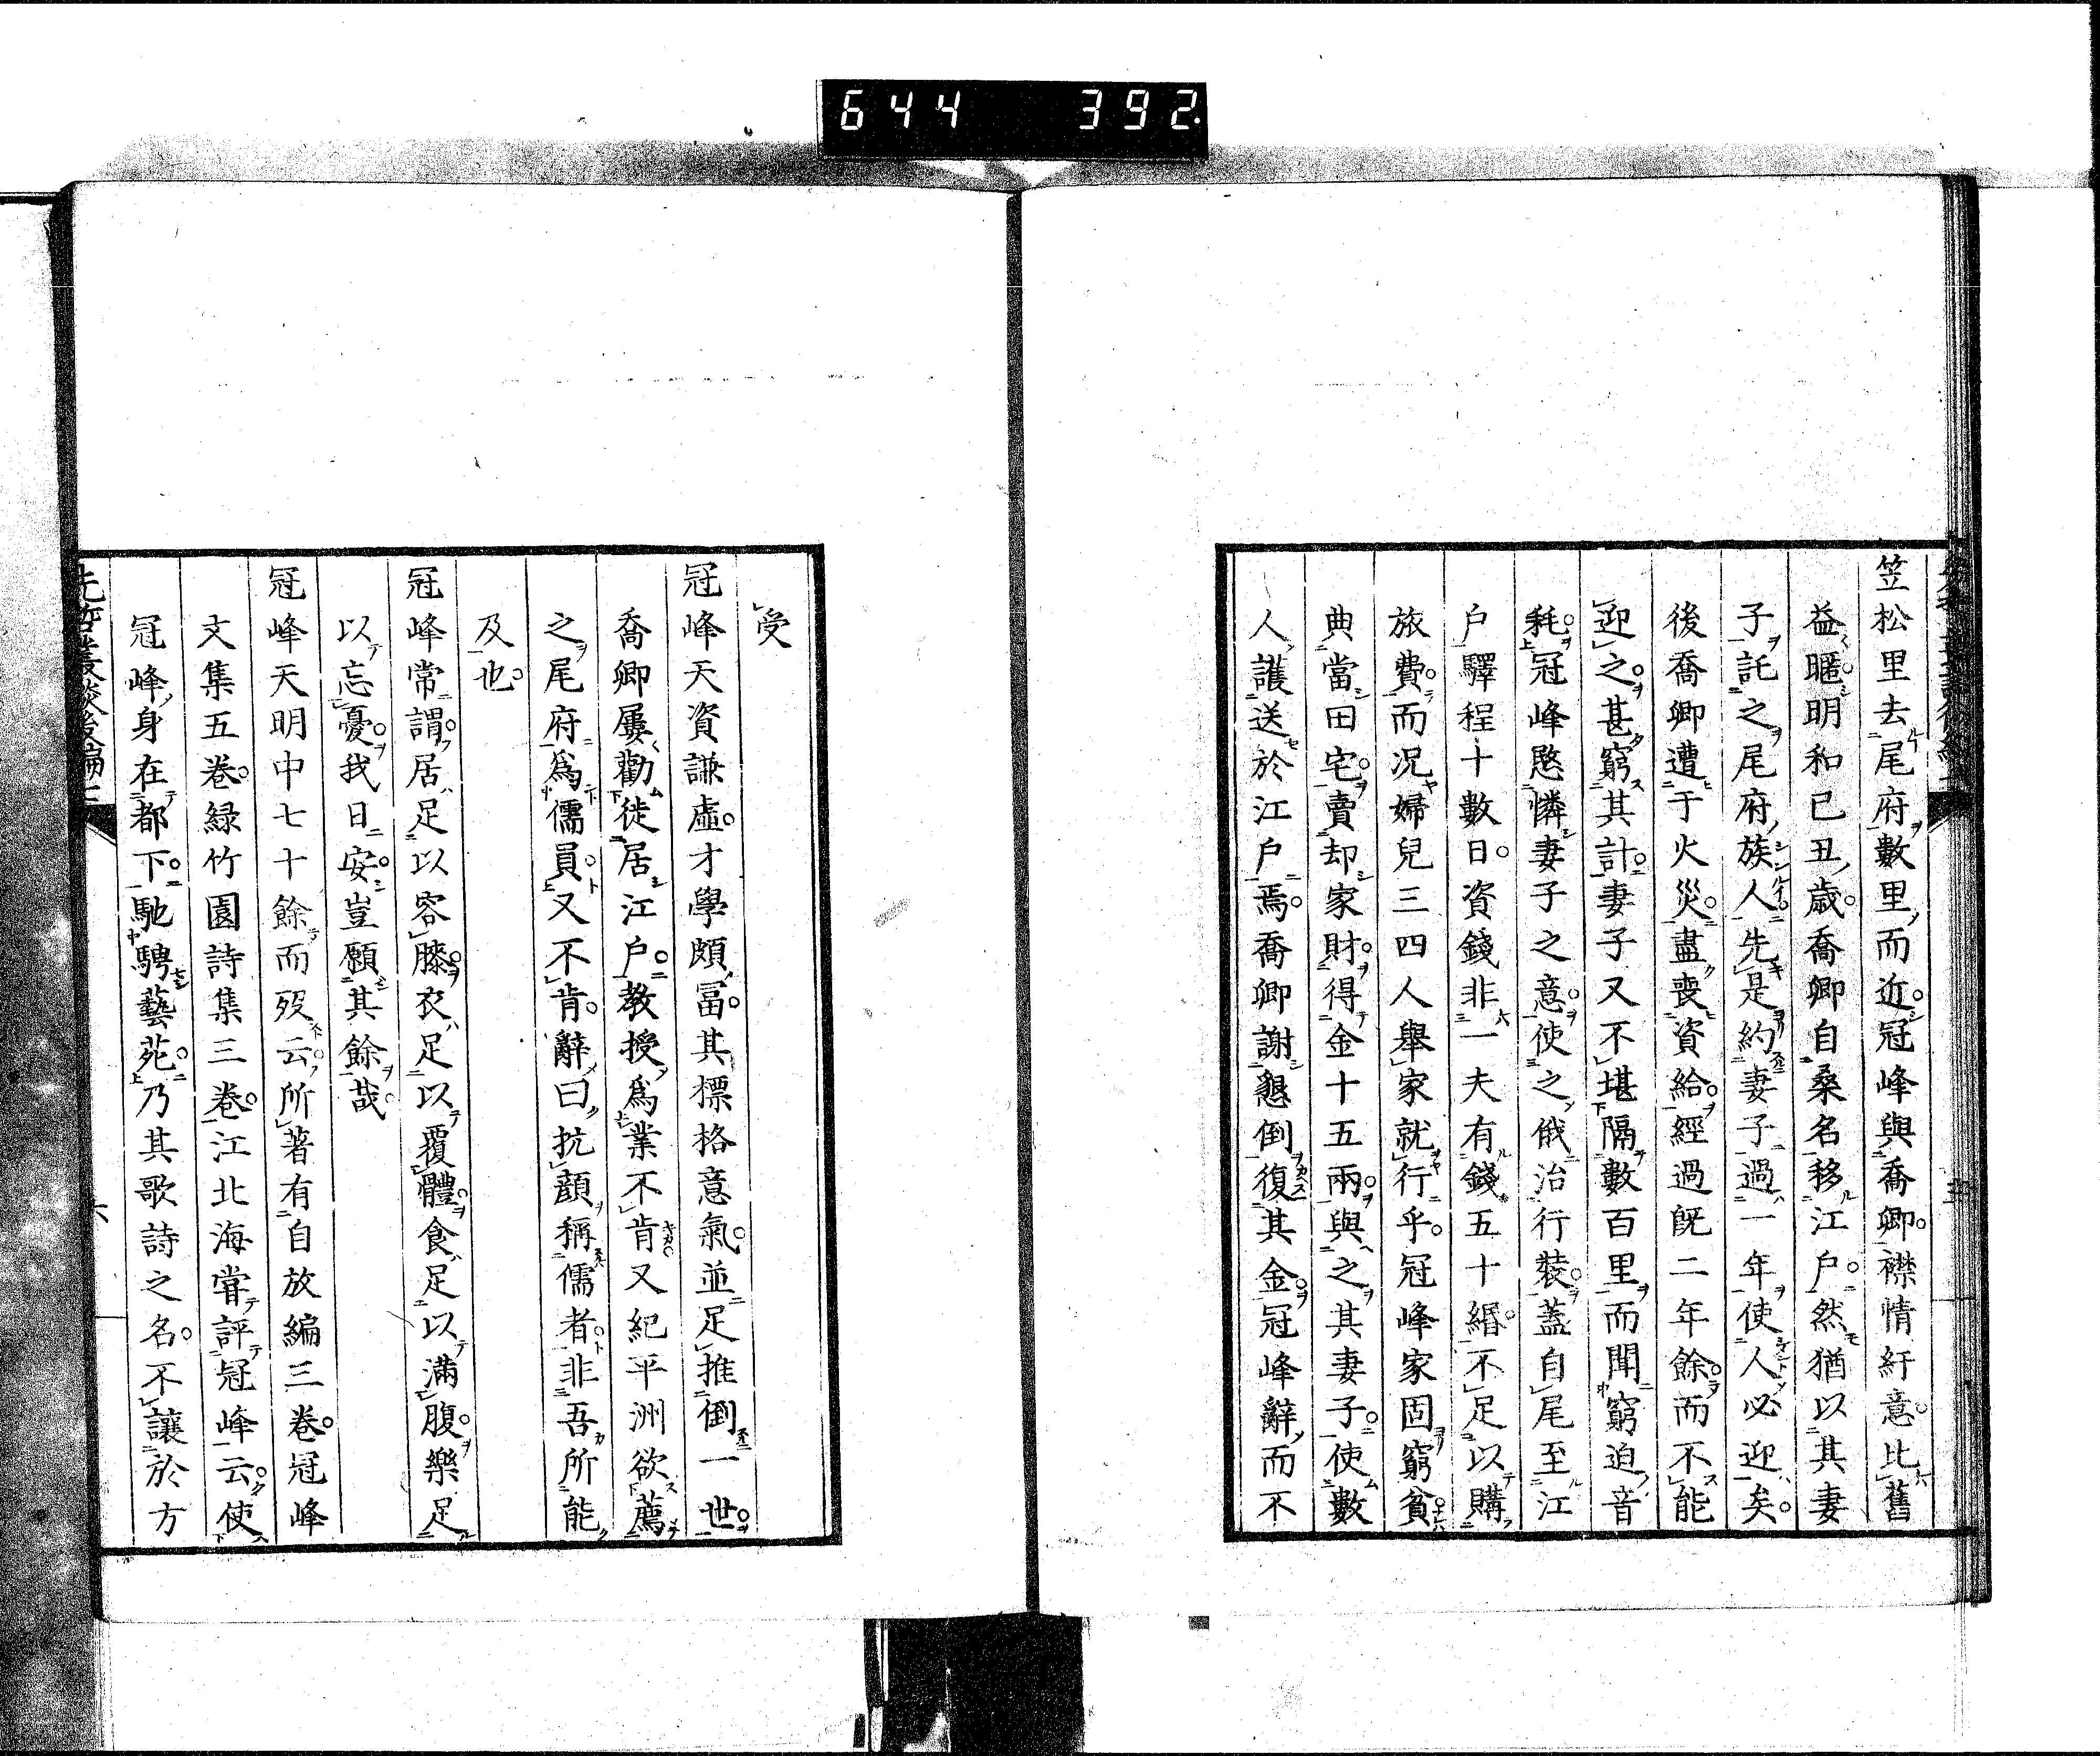 644 392
笠松里去尾府數里而近冠峰與喬卿襟情紆意比舊
益暱明和己丑歳喬卿自桑名移江戸然猶以其妻
子託之尾府族人先是約妻子過一年使人必迎矣
後喬卿遭于火災盡喪資給經過既二年餘而不能
迎之甚窮其計妻子又不堪隔數百里而聞窮迫音
耗冠峰愍憐妻子之意使之俄治行裝蓋自尾至江
戸驛程十數日資錢非一夫有錢五十緡不足以購
旅費而況婦兒三四人舉家就行乎冠峰家固窮貧
典當田宅賣却家財得金十五兩與之其妻子使數
人護送於江戸焉喬卿謝懇倒復其金冠峰辭而不
受
冠峰天資謙虛才學頗冨其標格意氣並足推倒一世
喬卿屢勸徙居江戸教授爲業不肯又紀平洲欲薦
之尾府爲儒員又不肯辭曰抗顔稱儒者非吾所能
及也
冠峰常謂居足以容膝衣足以覆體食足以滿腹樂足
以忘憂我日安豈願其餘哉
冠峰天明中七十餘而歿云所著有自放編三卷冠峰
文集五卷緑竹園詩集三卷江北海甞評冠峰云使
冠峰身在都下馳騁藝苑乃其歌詩之名不讓於方
先哲叢談後編七
六